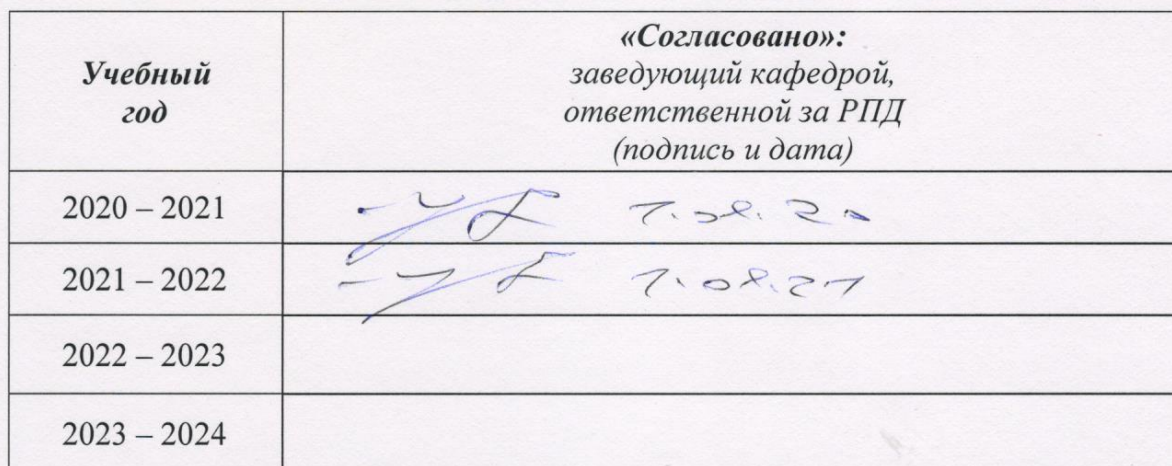 Учебный
год
«Согласовано»:
заведующий кафедрой,
ответственной за РПД
(подпись и дата)
2020 – 2021
1.08.20
2021 – 2022
1.08.21
2022 – 2023
2023 – 2024